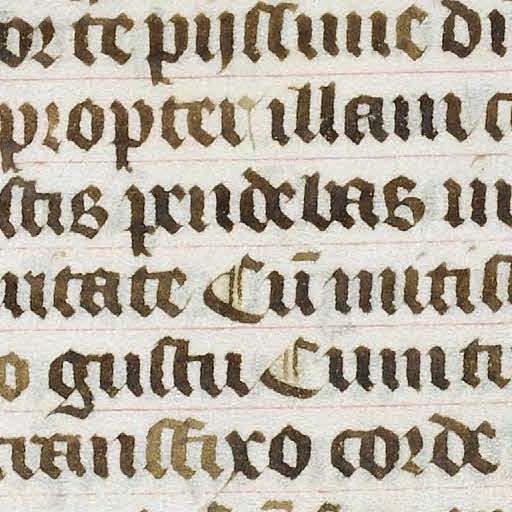 or te pijssime di
propter illam c
stis pendebas in
uitate Cū mitiss
o gustu Cum ti
transfixo corde